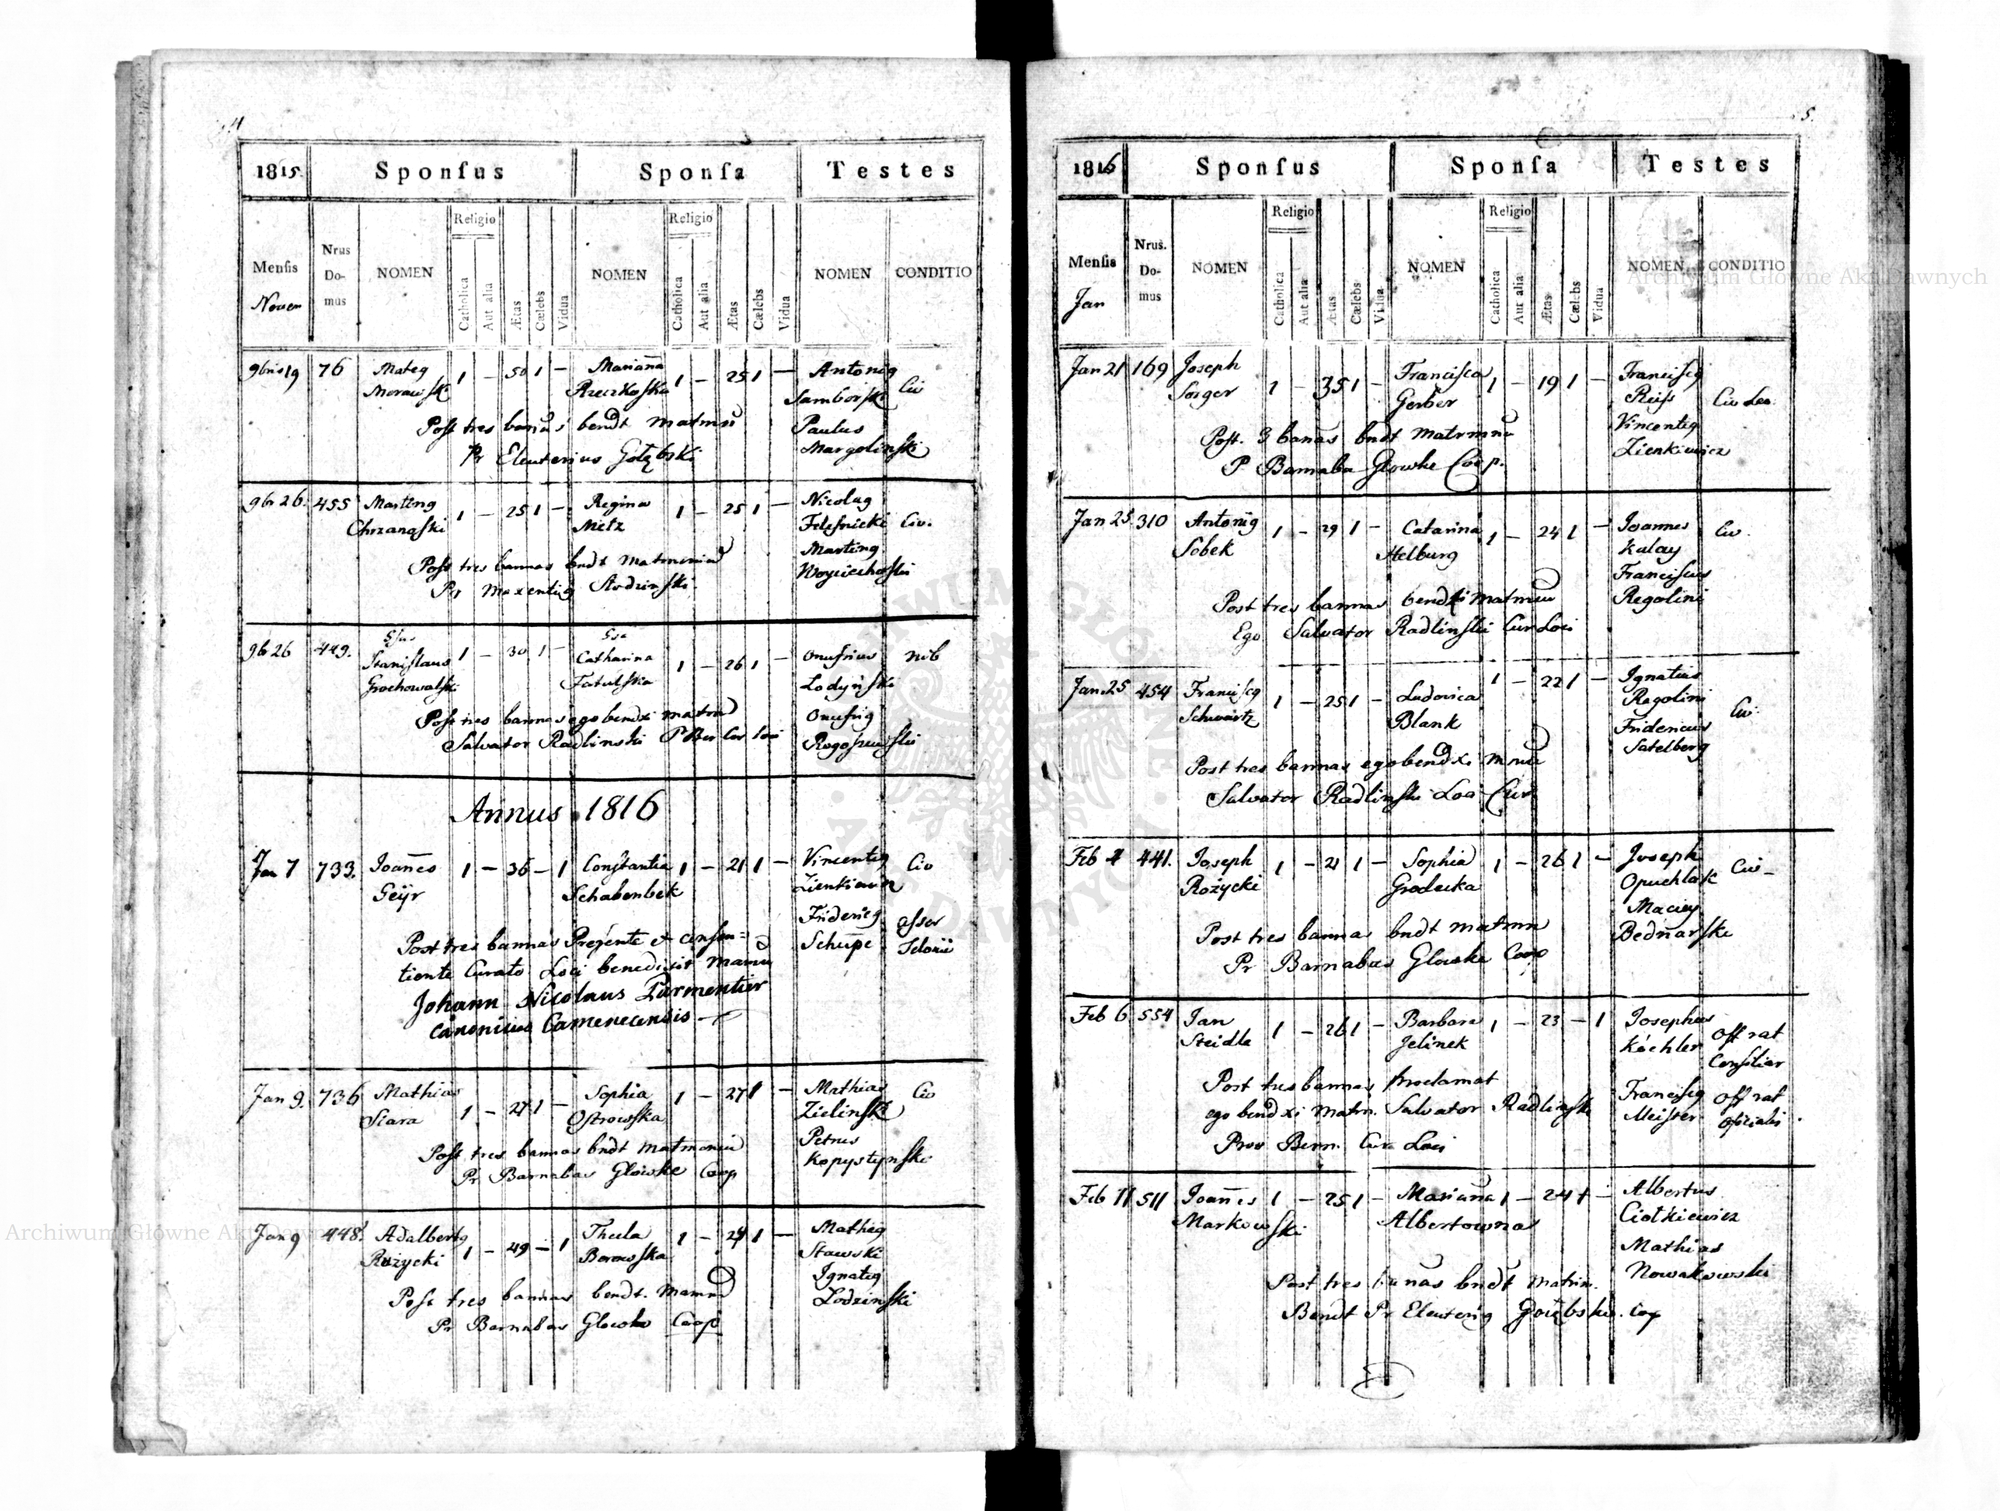 4
1815. Sponſus Sponſa Testes
Menſis Nrus Domus NOMEN Religio Catholica Aut alia Ætas Cælebs Vidua NOMEN Religio Catholica Aut alia Ætas Cælebs Vidua NOMEN CONDITIO
Novem
9bris 19 76 Mateg 1 – 50 1 – Marianna 1 – 25 1 – Antonig Civ
Morawſki Samborſki
Post tres banās bendt matrmū Paulus
Pr Eleuterius Gołębski Margolinſki
9br 26. 455 Marting 1 – 25 1 – Regina 1 – 25 1 – Nicolag Civ.
Chrzanoſki Metz
Post tres bannas bndt matrimoniū Marting
Pr Maxentig Woyciechoſki
9b 26 449. Gſus Gsa
Stanislaus 1 – 30 1 – Catharina 1 – 26 1 – Onufrius nob
Grochowalſki Lodyńſki
Post tres bannas ego bendxi matrmū Onufrig
Salvator Radlinski Loci
Annus 1816
Jan 7 733. Joannes 1 – 36 – 1 Constantia 1 – 21 1 – Vincentig Civ
Geijr Schabenbek Zienkiewicz
Post tres bannas Preſente et consen= Friderig
tiente Curato Loci benedixit Schüpe
Johann Nicolaus Parmentier
canonicus Camenecensis
Jan 9. 736 Mathias 1 – 27 1 – Sophia 1 – 27 1 – Mathias Civ
Siara Ostrowſka Zielinſki
Post tres bannas bndt matrmoniū Petrus
Pr Barnabas Glowke Coop Kopystynſki
Jan 9 448. Adalbertg 1 – 49 – 1 Thecla 1 – 24 1 – Matheg
Rożycki Borowſka Stawski
Post tres bannas bendt. Ignatig
Pr Barnabas Glowke Coop Lodzinſki
5.
1816 Sponſus Sponſa Testes
Menſis Nrus. Domus NOMEN Religio Catholica Aut alia Ætas Cælebs Vidua NOMEN Religio Catholica Aut alia Ætas Cælebs Vidua NOMEN CONDITIO
Jan
Jan 21 169 Joseph 1 – 35 1 – Franciſca 1 – 19 1 – Franciſcg
Sorger Gerber Reiſs Civ Leo.
Post. 3 banās bndt matrmnū Vincentig
P Barnaba Glowke Coop. Zienkiewicz
Jan 25. 310 Antonig 1 – 29 1 – Catarina 1 – 24 1 – Joannes Civ.
Sobek Helburg Kalay
Post tres bannas bendxi matrmnū Franciſcus
Ego Salvator Radlinſki Cur Loci Regolini
Jan. 25 454 Franciſcg 1 – 25 1 – Ludovica 1 – 22 1 – Ignatius
Schwartz Blank Regolini Civ.
Post tres bannas ego bendxi Fridericus
Salvator Radlinſki Loci Cur Satelberg
Feb 4 441. Joseph 1 – 21 1 – Sophia 1 – 26 1 – Joseph Civ –
Rożycki Grodecka Opuchlak
Post tres bannas bndt matrmn Maciey
Pr Barnabas Glowke Coop Bednarſki
Feb 6 554 Jan 1 – 26 1 – Barbara 1 – 23 – 1 Josephus off rat
Steidle Jelinek Köchler Consiliar
Post tres bannas proclamat Franciſcg off rat
ego bendxi matrn. Salvator Radlinſki Meiſter officialis
Prov Bern. Cur Loci
Feb 11 511 Joannes 1 – 25 1 – Marianna 1 – 24 1 – Albertus
Markowſki Albertowna Ciotkiewicz
Mathias
Post tres banas bndt matrim. Nowakowski
Bendt Pr Eleuterig Gołębski. Cop
Archiwum Główne Akt Dawnych
Archiwum Główne Akt Dawnych
ARCHIWUM GŁÓWNE · AKT DAWNYCH ·